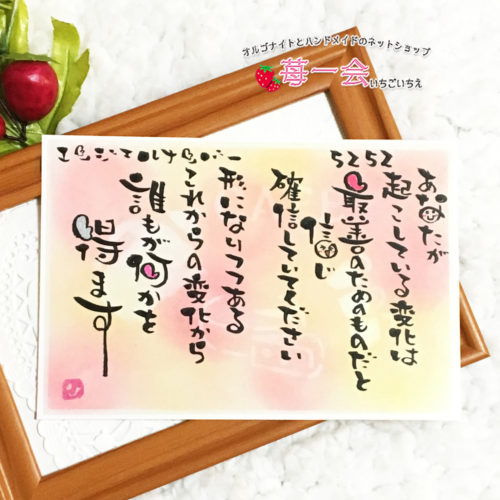 オルゴナイトとハンドメイドのネットショップ
苺一会 いちごいちえ
5252
あなたが
起こしている変化は
最善のためのものだと
信じ
確信していてください
形になりつつある
これからの変化から
誰もが何かを
得ます